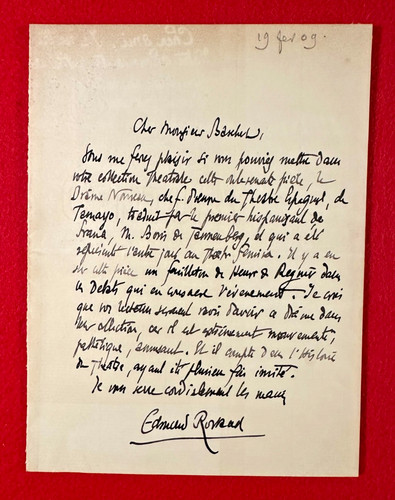 19 fev 09.
Cher Monsieur
Vous me ferez plaisir si vous pouvez mettre dans
votre collection théatrale cette intéressante pièce, le
Drame Nouveau, chef d'œuvre du Théâtre Espagnol, de
Tamayo, traduit par le premier hispanisant de
France, M. Boris de Tannenberg, et qui a été
représenté l'autre jour au Théâtre Femina. Il y a eu
sur cette pièce un feuilleton de Henri de Régnier dans
les Débats qui en l'événement. Je crois
que vos lecteurs seraient ravis d'avoir ce drame dans
leur collection, car il est extrêmement mouvementé,
pathétique, émouvant. Et il compte dans l'Histoire
du Théâtre, ayant été plusieurs fois imité.
Je vous serre cordialement les mains
Edmond Rostand